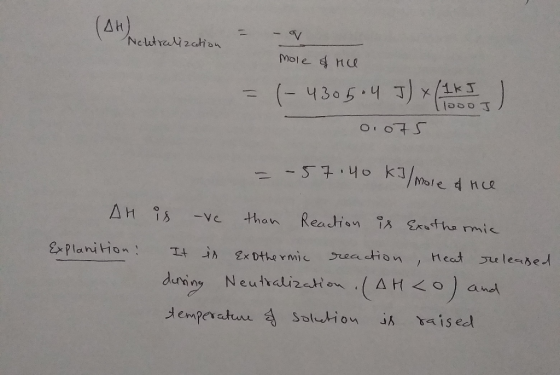 (ΔH)Neutralization = -q / Mole of HCl
= (-4305.4 J) × (1kJ / 1000 J) / 0.075
= -57.40 KJ/Mole of HCl
ΔH is -ve than Reaction is Exothermic
Explanition : It is Exothermic reaction, Heat released
during Neutralization. (ΔH < 0) and
temperature of solution is raised